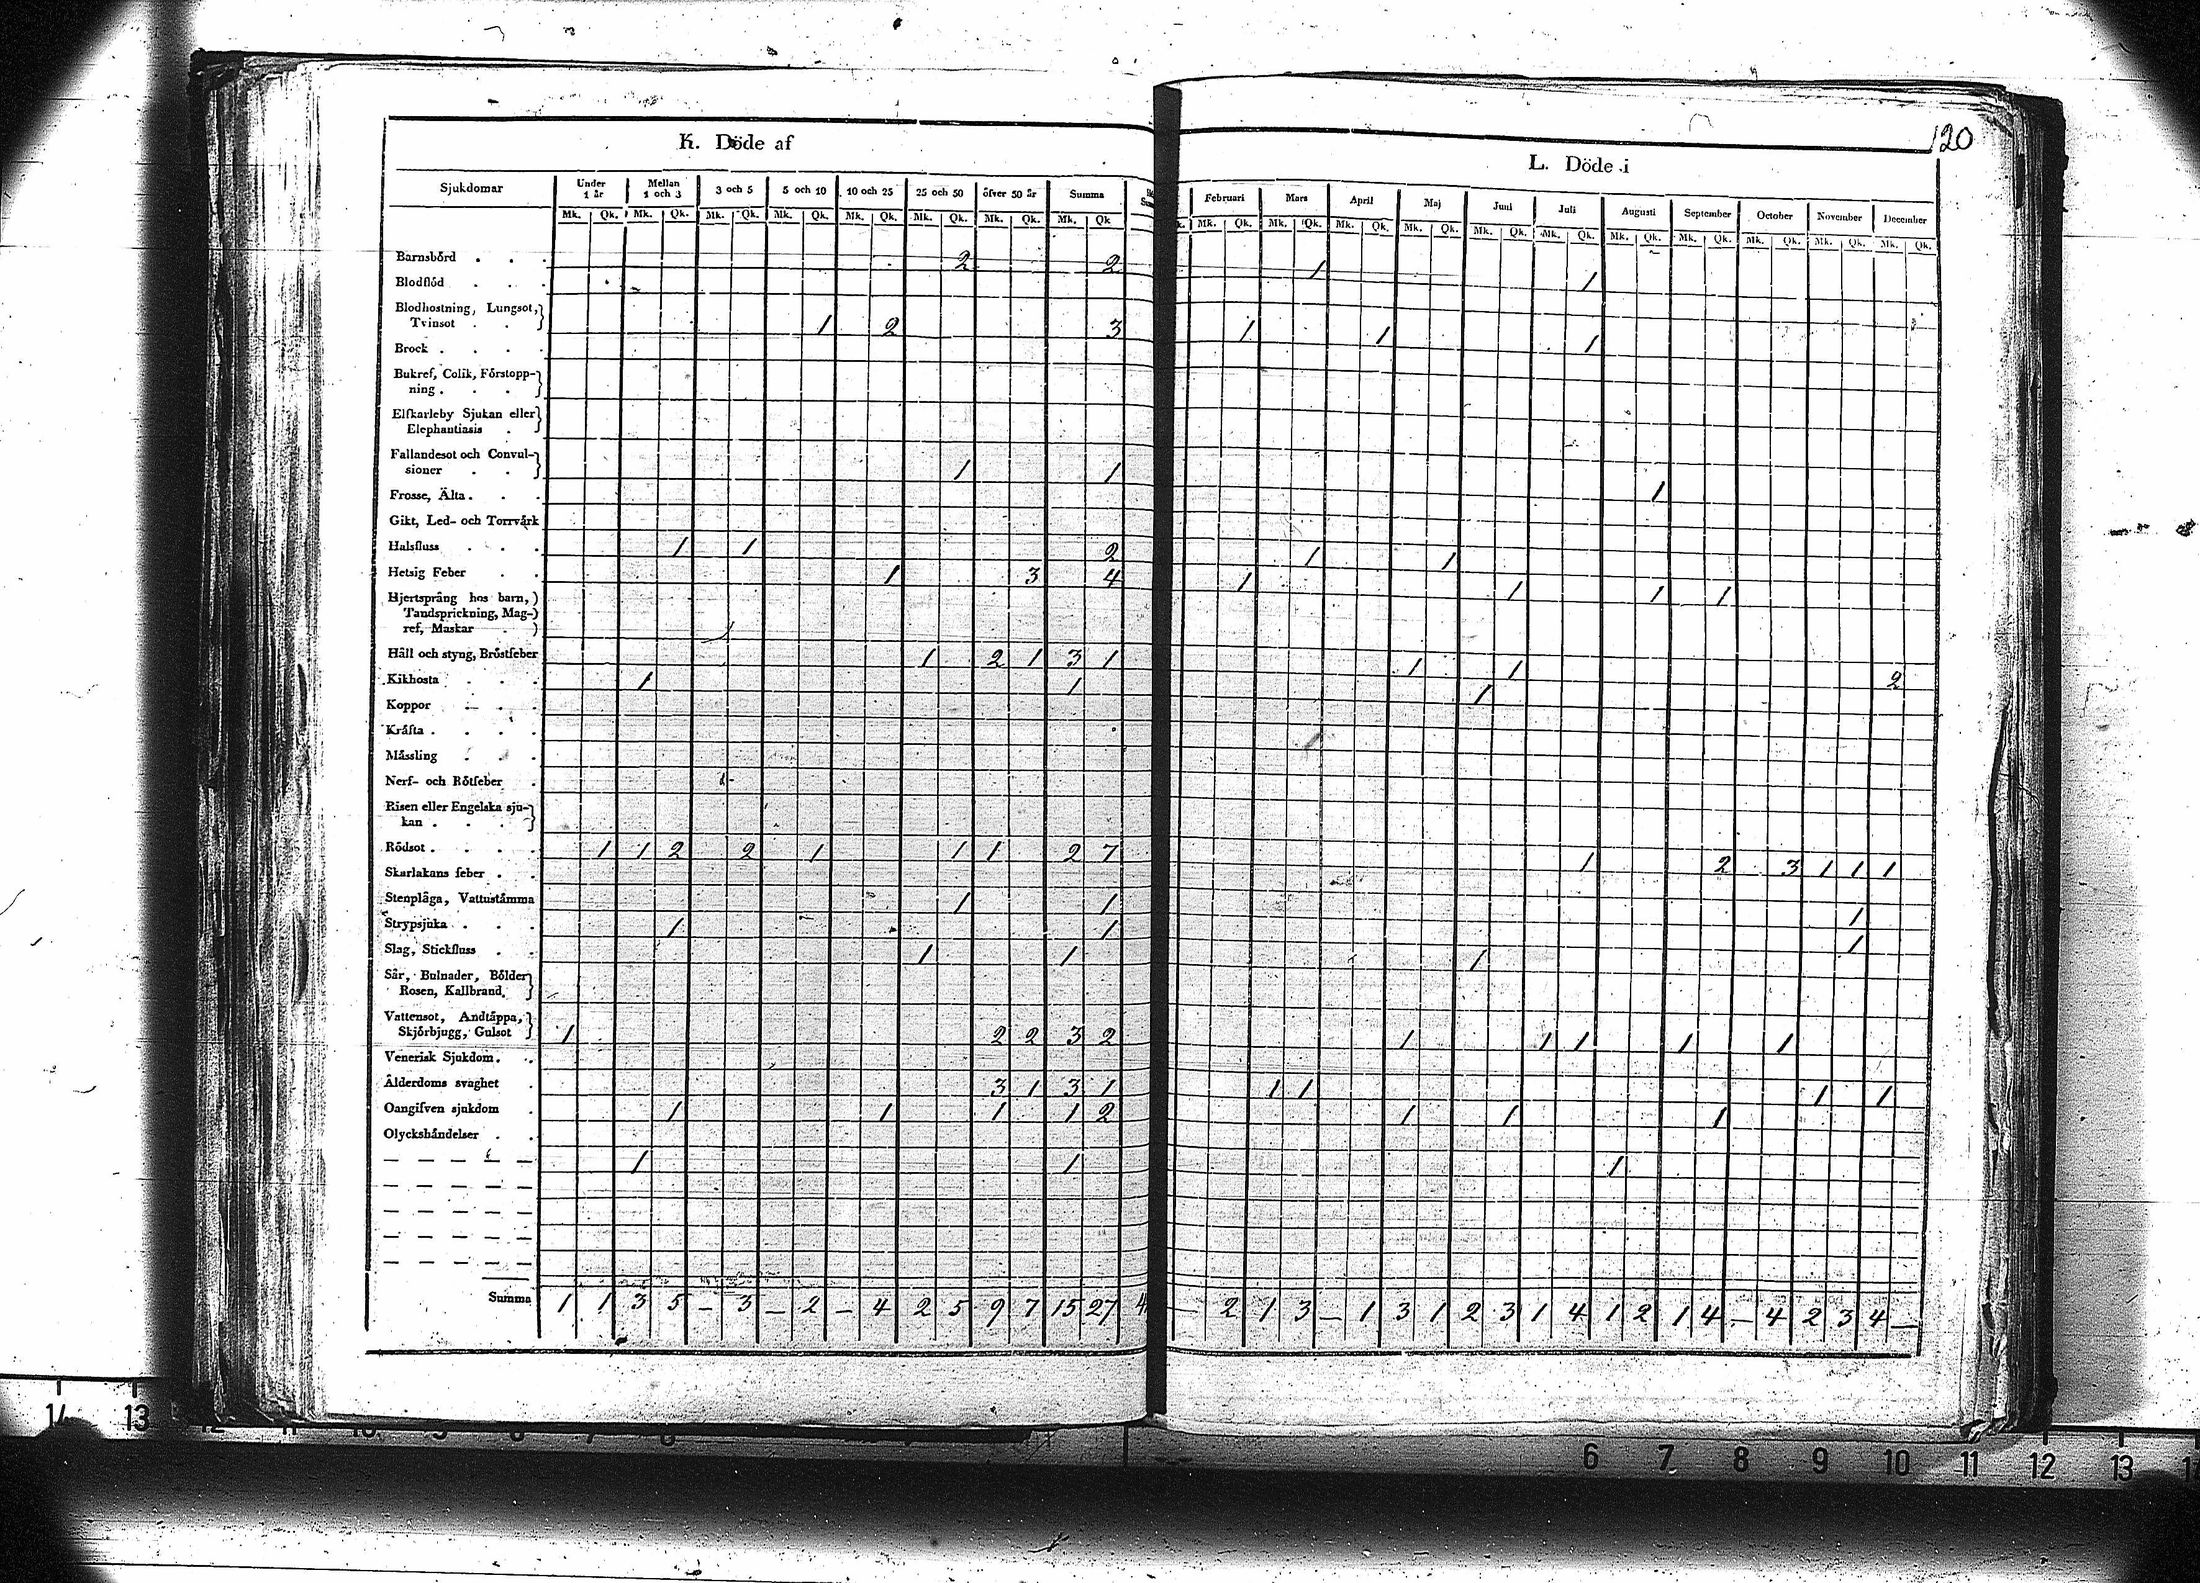 120
K. Döde af
L. Döde i
Sjukdomar Under 1 år Mellan 1 och 3 3 och 5 5 och 10 10 och 25 25 och 50 öfver 50 år Summa
Februari Mars April Maj Juni Juli Augusti September October November December
Mk. Qk. Mk. Qk. Mk. Qk. Mk. Qk. Mk. Qk. Mk. Qk. Mk. Qk. Mk. Qk
Mk. Qk. Mk. Qk. Mk. Qk. Mk. Qk. Mk. Qk. Mk. Qk. Mk. Qk. Mk. Qk. Mk. Qk. Mk. Qk. Mk. Qk.
Barnsbörd . . . 2 2 1 1
Blodflöd . . .
Blodhostning, Lungsot,
Tvinsot . . 1 2 3 1 1 1
Brock . . . .
Bukref, Colik, Förstopp-
ning . . . .
Elfkarleby Sjukan eller
Elephantiasis .
Fallandesot och Convul-
sioner . . 1 1 1
Frosse, Älta . . .
Gikt, Led- och Torrvärk
Halsfluss . . . 1 1 2 1 1
Hetsig Feber . . 1 3 4 1 1 1 1
Hjertsprång hos barn,
Tandsprickning, Mag-
ref, Maskar .
Håll och styng, Bröstfeber 1 2 1 3 1 1 1 2
Kikhosta . . . 1 1 1
Koppor . . .
Kräfta . . . .
Mässling . . .
Nerf- och Rötfeber .
Risen eller Engelska sju-
kan . . . .
Rödsot . . . . 1 1 2 2 1 1 1 2 7 1 2 3 1 1 1
Skarlakans feber . .
Stenplåga, Vattustämma 1 1 1
Strypsjuka . . . 1 1 1
Slag, Stickfluss . . 1 1 1
Sår, Bulnader, Bölder
Rosen, Kallbrand.
Vattensot, Andtäppa,
Skjörbjugg, Gulsot 1 2 2 3 2 1 1 1 1 1
Venerisk Sjukdom . .
Ålderdoms svaghet . 3 1 3 1 1 1 1 1
Oangifven sjukdom . 1 1 1 1 2 1 1 1
Olyckshändelser . .
— — — — 1 1 1
— — — —
— — — —
— — — —
— — — —
Summa 1 1 3 5 — 3 — 2 — 4 2 5 9 7 15 27 4 — 2 1 3 — 1 3 1 2 3 1 4 1 2 1 4 — 4 2 3 4 —
14 13 12 11 10 9 8 7 6
6 7 8 9 10 11 12 13